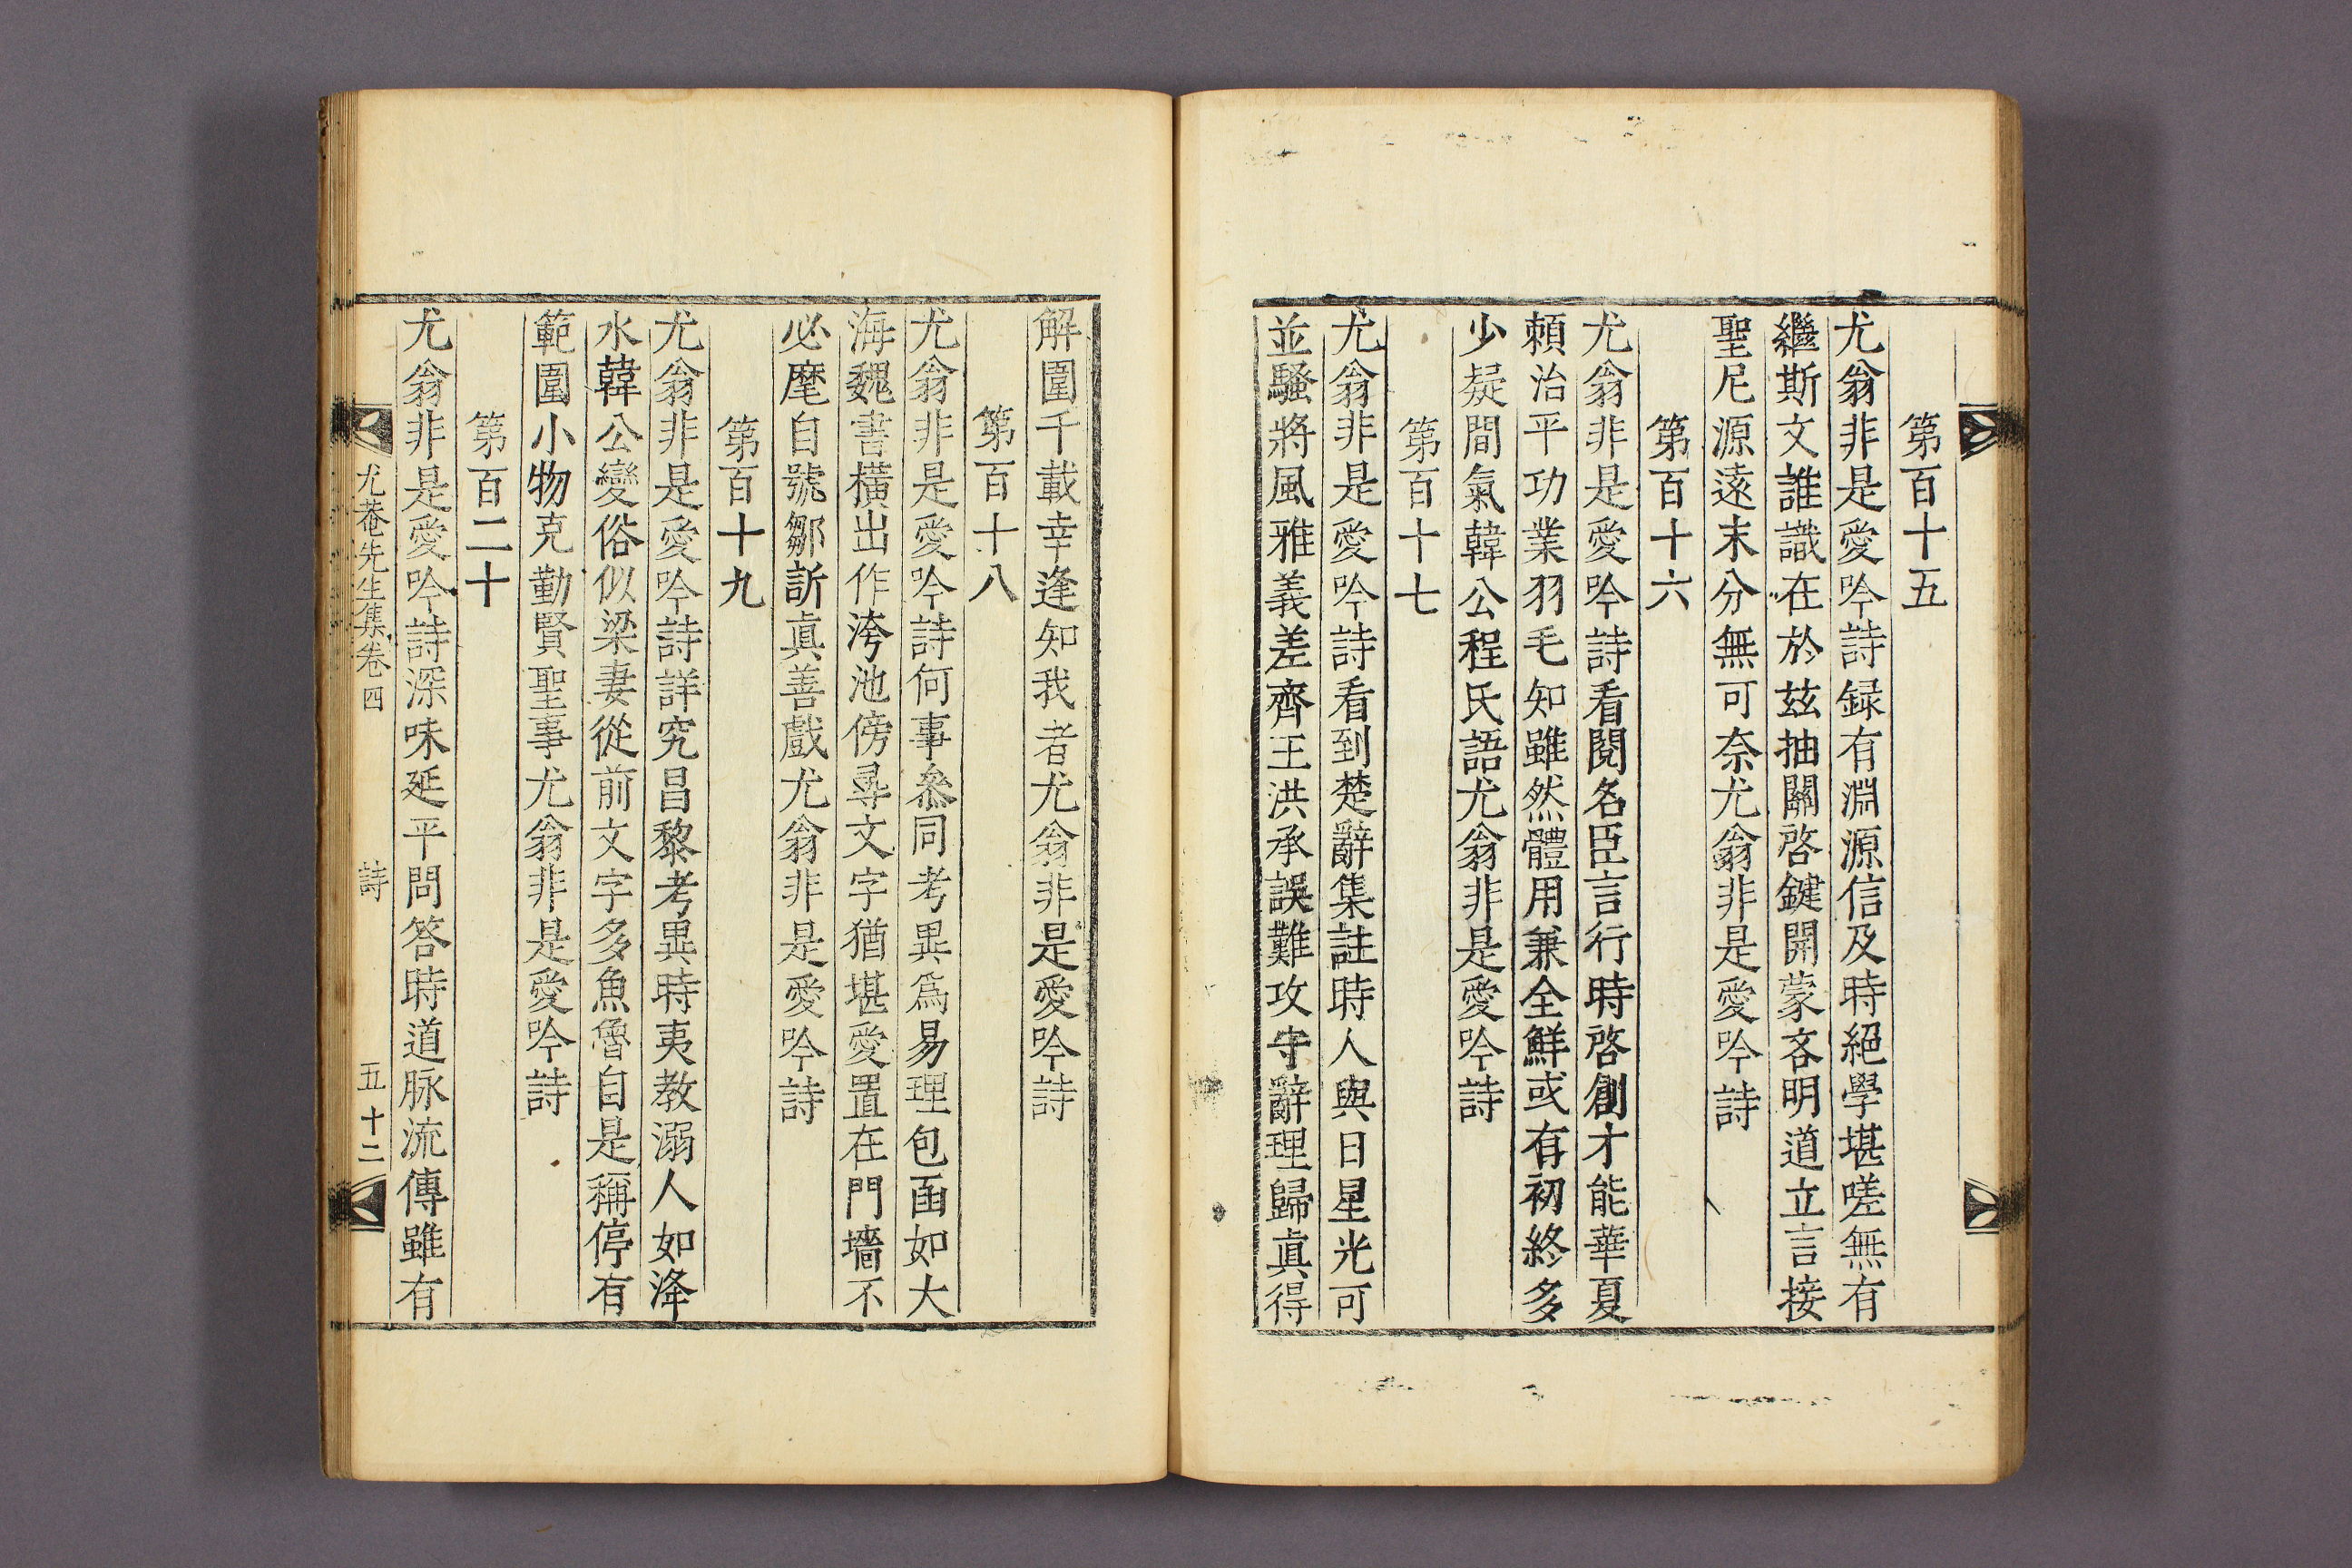 第百十五
尤翁非是愛吟詩録有淵源信及時絕學堪嗟無有
繼斯文誰識在於玆抽關啓鍵開蒙吝明道立言接
聖尼源遠末分無可奈尤翁非是愛吟詩
第百十六
尤翁非是愛吟詩看閱名臣言行時啓創才能華夏
賴治平功業羽毛知雖然體用兼全鮮或有初終多
少疑間氣韓公程氏語尤翁非是愛吟詩
第百十七
尤翁非是愛吟詩看到楚辭集註時人與日星光可
並騷將風雅義差齊王洪承誤難攻守辭理歸眞得
解圍千載幸逢知我者尤翁非是愛吟詩
第百十八
尤翁非是愛吟詩何事叅同考異爲易理包函如大
海魏書橫出作洿池傍尋文字猶堪愛置在門墻不
必麾自號鄒訢眞善戲尤翁非是愛吟詩
第百十九
尤翁非是愛吟詩詳究昌黎考異時夷教溺人如洚
水韓公變俗似梁妻從前文字多魚魯自是稱停有
範圍小物克勤賢聖事尤翁非是愛吟詩
第百二十
尤翁非是愛吟詩深味延平問答時道脉流傳雖有
尤菴先生集卷四 詩 五十二